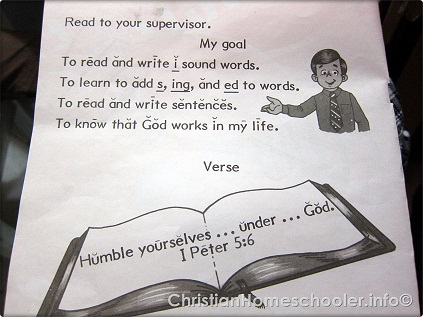 Read to your supervisor.
My goal
To rēad ănd wrīte ĭ sound words.
To learn to ădd s, ing, ănd ed to words.
To rēad ănd wrīte sĕntĕnçĕs.
To knōw thăt Gŏd works ĭn mȳ līfe.
Verse
Hŭmble yoursĕlves ... ŭnder ... Gŏd.
I Pēter 5:6
ChristianHomeschooler.info©